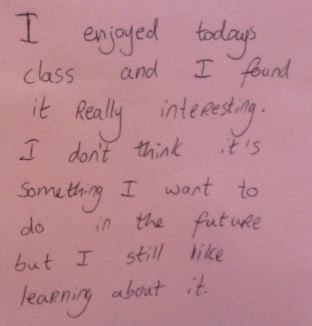 I enjoyed todays
class and I found
it Really inteResting.
I don't think it's
Something I want to
do in the futuRe
but I still like
leaRning about it.